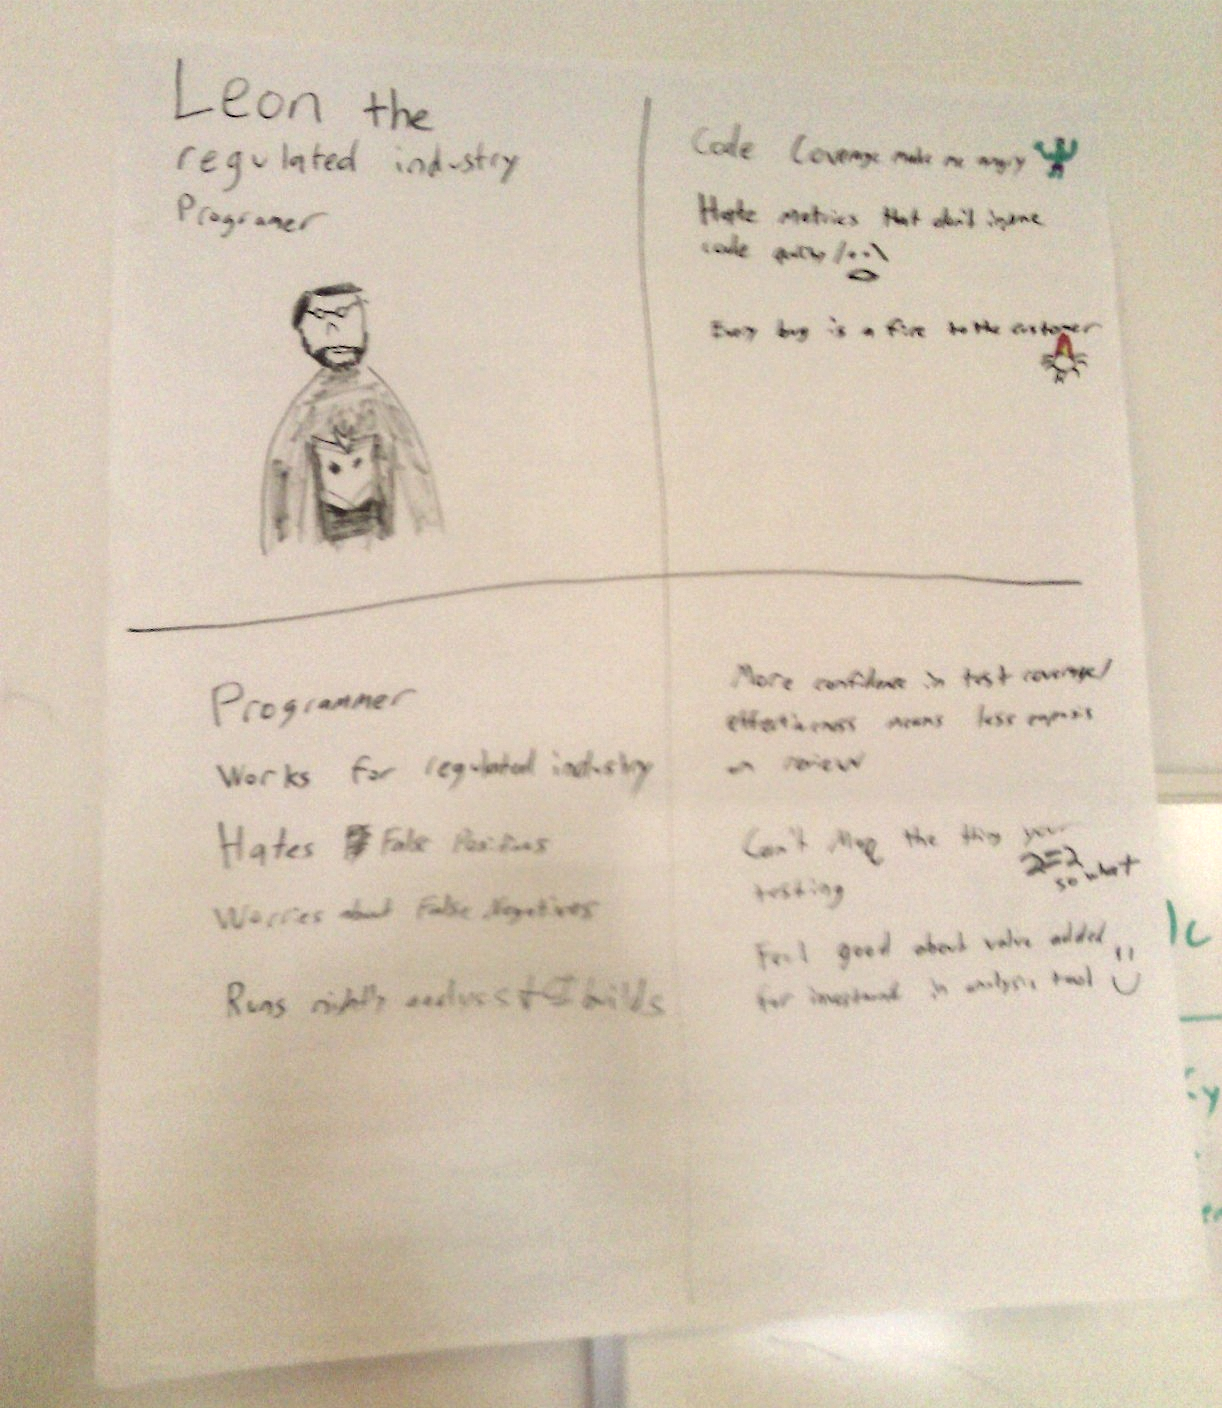 Leon the
regulated industry
Programer
Code Coverage make me angry
Hate metrics that don't
code quality
Every bug is a fire to the customer
Programmer
Works for regulated industry
Hates False Positives
Worries about False Negatives
Runs nightly analysis + builds
More confidence in test coverage/
effectiveness means less
on review
Can't the thing your
testing
2=2
so what
Feel good about value added
for investment in analysis tool
Ic